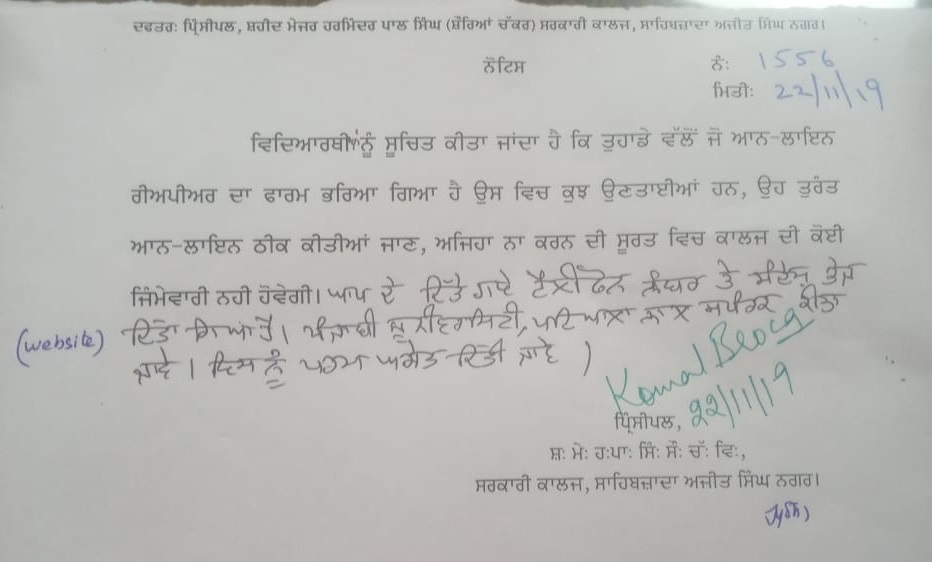 ਦਫਤਰ: ਪ੍ਰਿੰਸੀਪਲ, ਸ਼ਹੀਦ ਮੇਜਰ ਹਰਮਿੰਦਰ ਪਾਲ ਸਿੰਘ (ਸ਼ੌਰਿਆ ਚੱਕਰ) ਸਰਕਾਰੀ ਕਾਲਜ, ਸਾਹਿਬਜ਼ਾਦਾ ਅਜੀਤ ਸਿੰਘ ਨਗਰ।
ਨੋਟਿਸ
ਨੰ: 1556
ਮਿਤੀ: 22/11/19
ਵਿਦਿਆਰਥੀਆਂ ਨੂੰ ਸੂਚਿਤ ਕੀਤਾ ਜਾਂਦਾ ਹੈ ਕਿ ਤੁਹਾਡੇ ਵੱਲੋਂ ਜੋ ਆਨ-ਲਾਇਨ
ਰੀਅਪੀਅਰ ਦਾ ਫਾਰਮ ਭਰਿਆ ਗਿਆ ਹੈ ਉਸ ਵਿਚ ਕੁਝ ਉਣਤਾਈਆਂ ਹਨ, ਉਹ ਤੁਰੰਤ
ਆਨ-ਲਾਇਨ ਠੀਕ ਕੀਤੀਆਂ ਜਾਣ, ਅਜਿਹਾ ਨਾ ਕਰਨ ਦੀ ਸੂਰਤ ਵਿਚ ਕਾਲਜ ਦੀ ਕੋਈ
ਜਿੰਮੇਵਾਰੀ ਨਹੀ ਹੋਵੇਗੀ। ਆਪ ਦੇ ਦਿੱਤੇ ਗਏ ਟੈਲੀਫੋਨ ਨੰਬਰ ਤੇ ਮੈਸੇਜ ਭੇਜ
(website) ਦਿੱਤਾ ਗਿਆ ਹੈ। ਪੰਜਾਬੀ ਯੂਨੀਵਰਸਿਟੀ, ਪਟਿਆਲਾ ਨਾਲ ਸਪੰਰਕ ਕੀਤਾ
ਜਾਵੇ। ਇਸ ਨੂੰ ਪਰਮ ਅਗੇਤ ਦਿੱਤੀ ਜਾਵੇ)
Komal Broca
22/11/19
ਪ੍ਰਿੰਸੀਪਲ,
ਸ਼: ਮੇ: ਹ:ਪਾ: ਸਿੰ: ਸੌ: ਚੱ: ਵਿ:,
ਸਰਕਾਰੀ ਕਾਲਜ, ਸਾਹਿਬਜ਼ਾਦਾ ਅਜੀਤ ਸਿੰਘ ਨਗਰ।